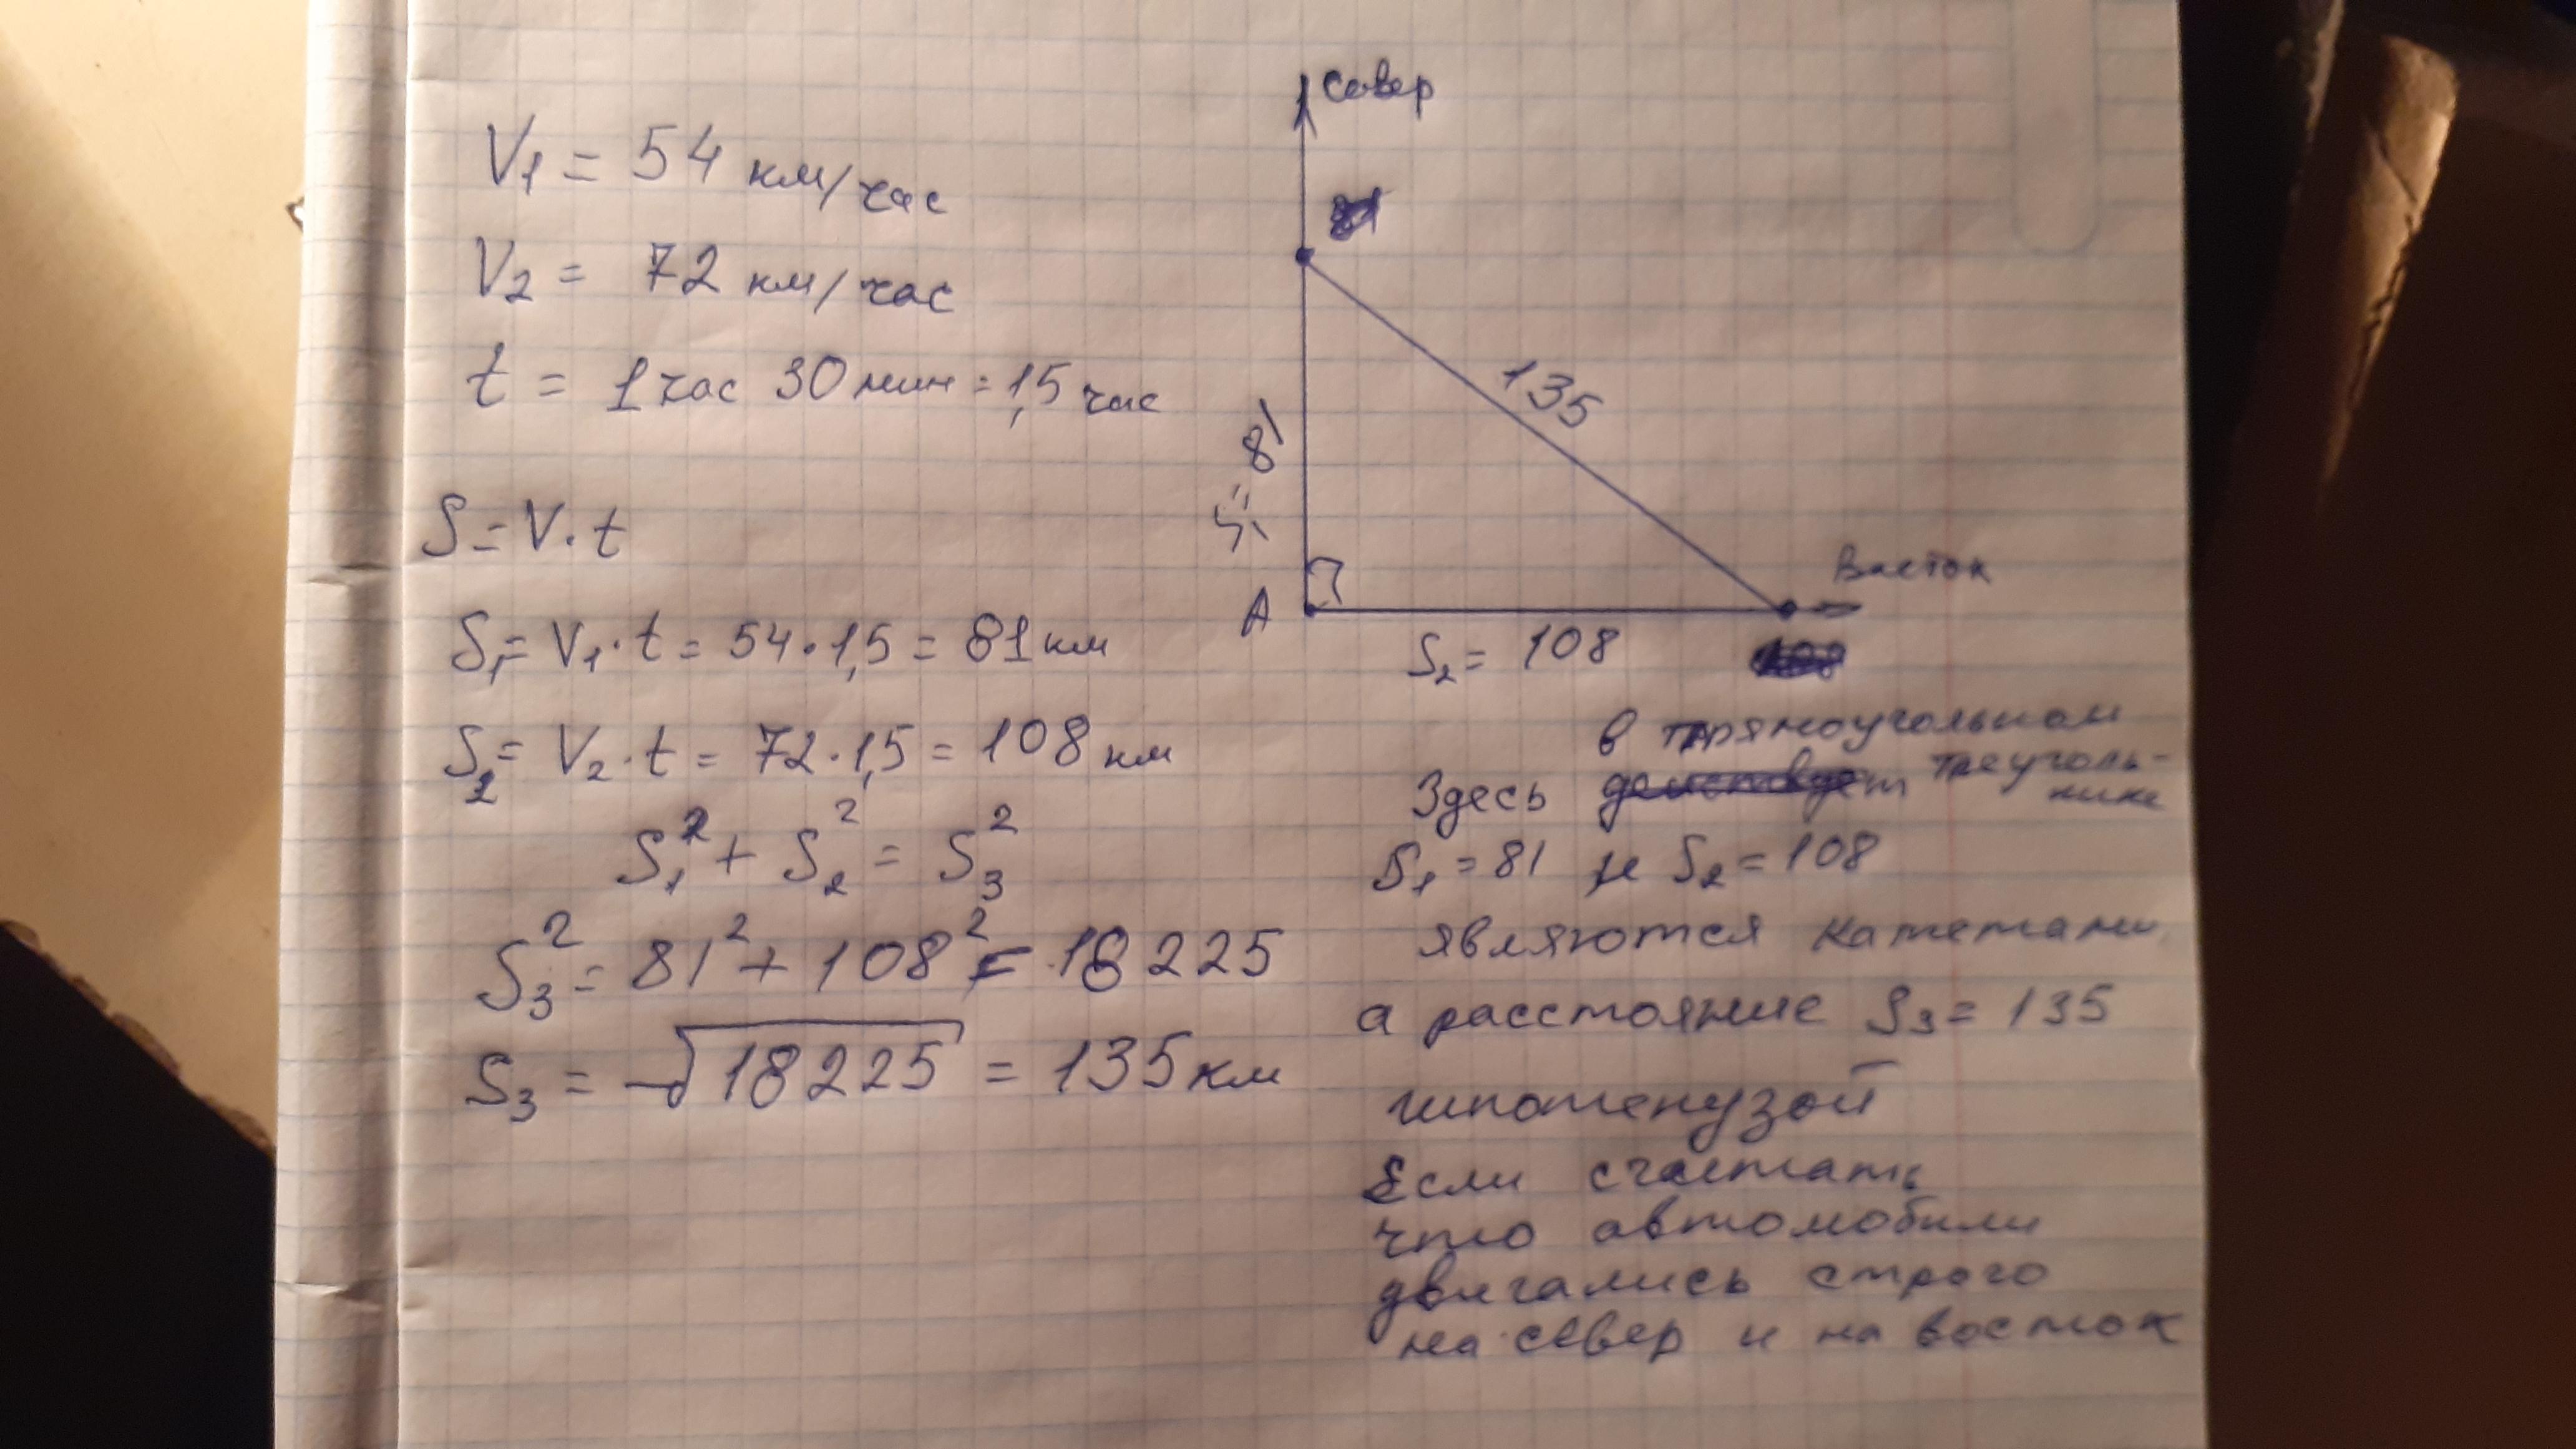 V1 = 54 км/час
V2 = 72 км/час
t = 1 час 30 мин = 1,5 час
S = V · t
S1 = V1 · t = 54 · 1,5 = 81 км
S2 = V2 · t = 72 · 1,5 = 108 км
S1² + S2² = S3²
S3² = 81² + 108² = 18225
S3 = √18225 = 135 км
Север
135
S1 = 81
A
Восток
S2 = 108
в прямоугольном
Здесь треуголь-
нике
S1 = 81 и S2 = 108
являются катетами
а расстояние S3 = 135
гипотенузой
Если считать
что автомобили
двигались строго
на север и на восток